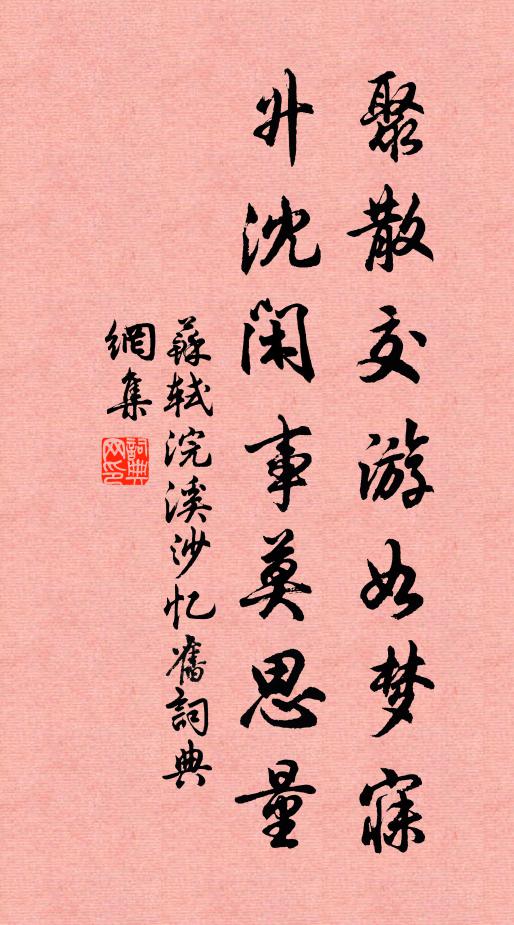 聚散交游如梦寐
升沈闲事莫思量
蘇轼浣溪沙忆舊詞典
網集
詞典网印